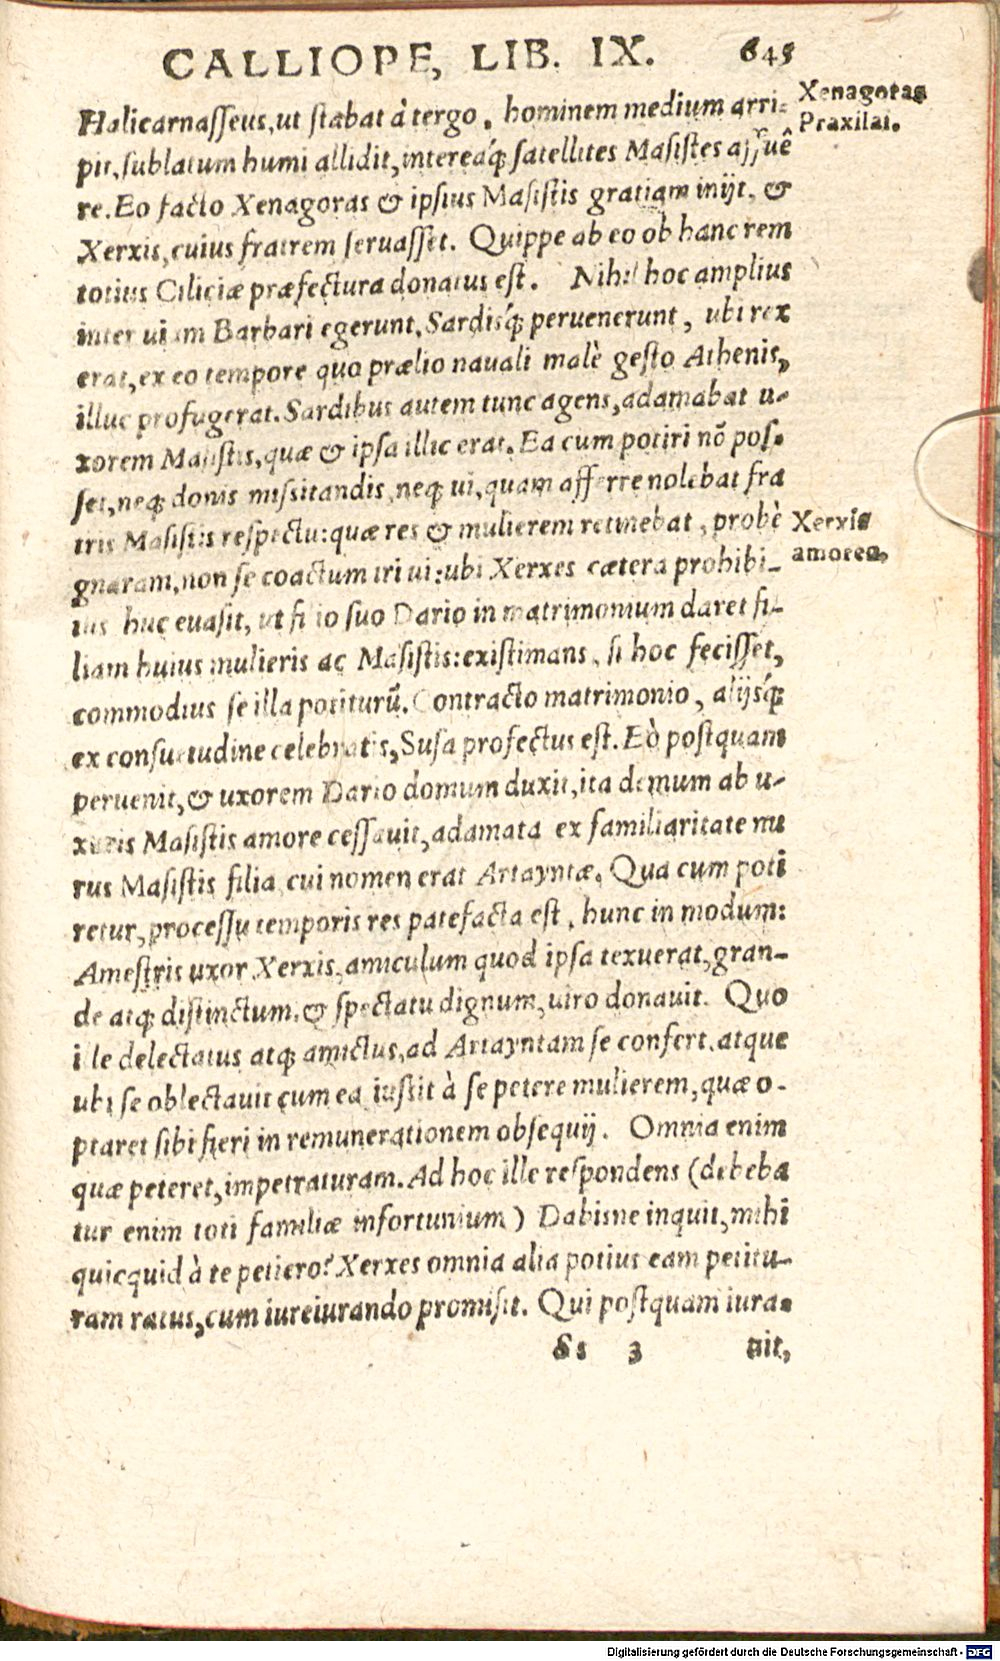 CALLIOPE, LIB. IX. 645
Halicarnasſeus, ut ſtabat à tergo, hominem medium arri-
Xenagoras
Praxilai.
pit, ſublatum humi allidit, intereaq́; ſatellites Maſiſtes aſſuê
re. Eo facto Xenagoras & ipſius Maſiſtis gratiam inijt, &
Xerxis, cuius fratrem ſeruaſſet. Quippe ab eo ob hanc rem
totius Ciliciæ præfectura donatus eſt. Nihil hoc amplius
inter uiam Barbari egerunt, Sardisq́; peruenerunt, ubi rex
erat, ex eo tempore quo prælio nauali malè geſto Athenis,
illuc profugerat. Sardibus autem tunc agens, adamabat u-
xorem Maſiſtis, quæ & ipſa illic erat. Ea cum potiri nō poſ-
ſet, neq; donis miſsitandis, neq; ui, quam afferre nolebat fra
tris Maſiſtis reſpectu: quæ res & mulierem retinebat, probè
Xerxis
amores,
gnaram, non ſe coactum iri ui: ubi Xerxes cætera prohibi-
tus huc euaſit, ut filio ſuo Dario in matrimonium daret fi-
liam huius mulieris ac Maſiſtis: exiſtimans, ſi hoc feciſſet,
commodius ſe illa potiturū. Contracto matrimonio, alijsq́;
ex conſuetudine celebratis, Suſa profectus eſt. Eò poſtquam
peruenit, & uxorem Dario domum duxit, ita demum ab u-
xoris Maſiſtis amore ceſſauit, adamata ex familiaritate nu
rus Maſiſtis filia, cui nomen erat Artayntæ. Qua cum poti
retur, proceſſu temporis res patefacta eſt, hunc in modum:
Ameſtris uxor Xerxis, amiculum quod ipſa texuerat, gran-
de atq; diſtinctum, & ſpectatu dignum, uiro donauit. Quo
ille delectatus atq; amictus, ad Artayntam ſe confert, atque
ubi ſe oblectauit cum ea, iuſsit à ſe petere mulierem, quæ o-
ptaret ſibi fieri in remunerationem obſequij. Omnia enim
quæ peteret, impetraturam. Ad hoc ille reſpondens (debeba
tur enim toti familiæ infortunium) Dabisne inquit, mihi
quicquid à te petiero? Xerxes omnia alia potius eam petitu-
ram ratus, cum iureiurando promiſit. Qui poſtquam iura-
Ss 3 uit,
Digitalisierung gefördert durch die Deutsche Forschungsgemeinschaft - DFG